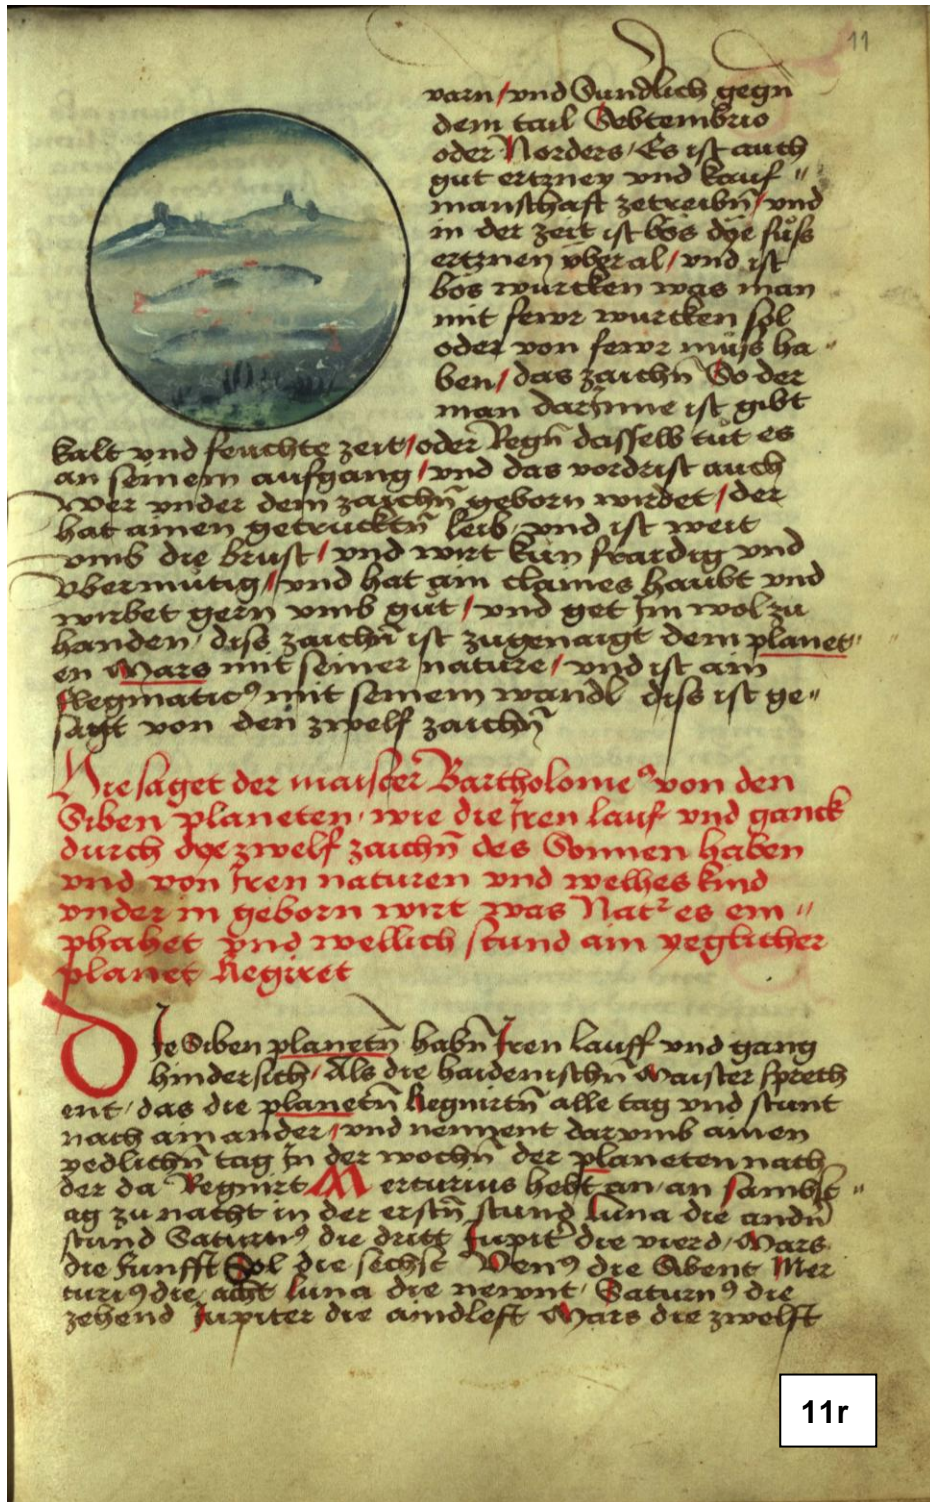 11
varn / vnd Sundlich gegn̄
dem tail Sebtembrio
oder Norders / Es ist auch
gut ertzney vnd kauf〃
manschaft zetreibn̄ / vnd
in der zeit ist bös dye füss
ertznen vberal / vnd ist
bös wurcken was man
mit fewr wurcken sol
oder von fewr müss ha〃
ben / das zaichn̄ So der
man darjnne ist gibt
kalt vnd feuchte zeit / oder Regn̄ dasselb tut es
an seinem aufgang / vnd das vordrist auch
Wer vnder dem zaichn̄ geborn wirdet / der
hat ainen getrucktn̄ leib / vnd ist weit
vmb die brust / vnd wirt kün fraidig vnd
vbermütig / vnd hat ain claines haubt vnd
wirbet gern vmb gut / vnd get Jm wol zu
handen / diss zaichn̄ ist zugenaigt dem planet〃
en Mars mit seiner nature / vnd ist ain
flegmaticꝰ mit seinem wandl diss ist ge〃
sagt von den zwelf zaichn̄
Hie saget der maister Bartholomeꝰ von den
Siben planeten / wie die Jren lauf vnd ganck
durch dye zwelf zaichn̄ des Sonnen haben
vnd von Jren naturen vnd welhes kind
vnder in geborn wirt was Natr es em〃
phahet vnd wellich stund ain yeglicher
planet Regiret
DJe Siben planetn̄ habn̄ Jren lauff vnd gang
hindersich / Als die haidenischn̄ Maister sprech
ent / das die planetn̄ Regnirtn̄ alle tag vnd stunt
nach ain ander / vnd nennent darvmb ainen
yedlichn̄ tag Jn der wochn̄ der planeten nach
der da Regnirt Merturius hebt an / an sambst〃
ag zu nacht in der erstn̄ stund Luna die andn̄
stund Saturnꝰ die dritt Jupitr̄ die vierd / Mars
die funfft Sol die sechst Venꝰ die Sibent Mer
curiꝰ die acht Luna die newnt / Saturnꝰ die
zehend Jupiter die aindleft Mars die zwelft
11r